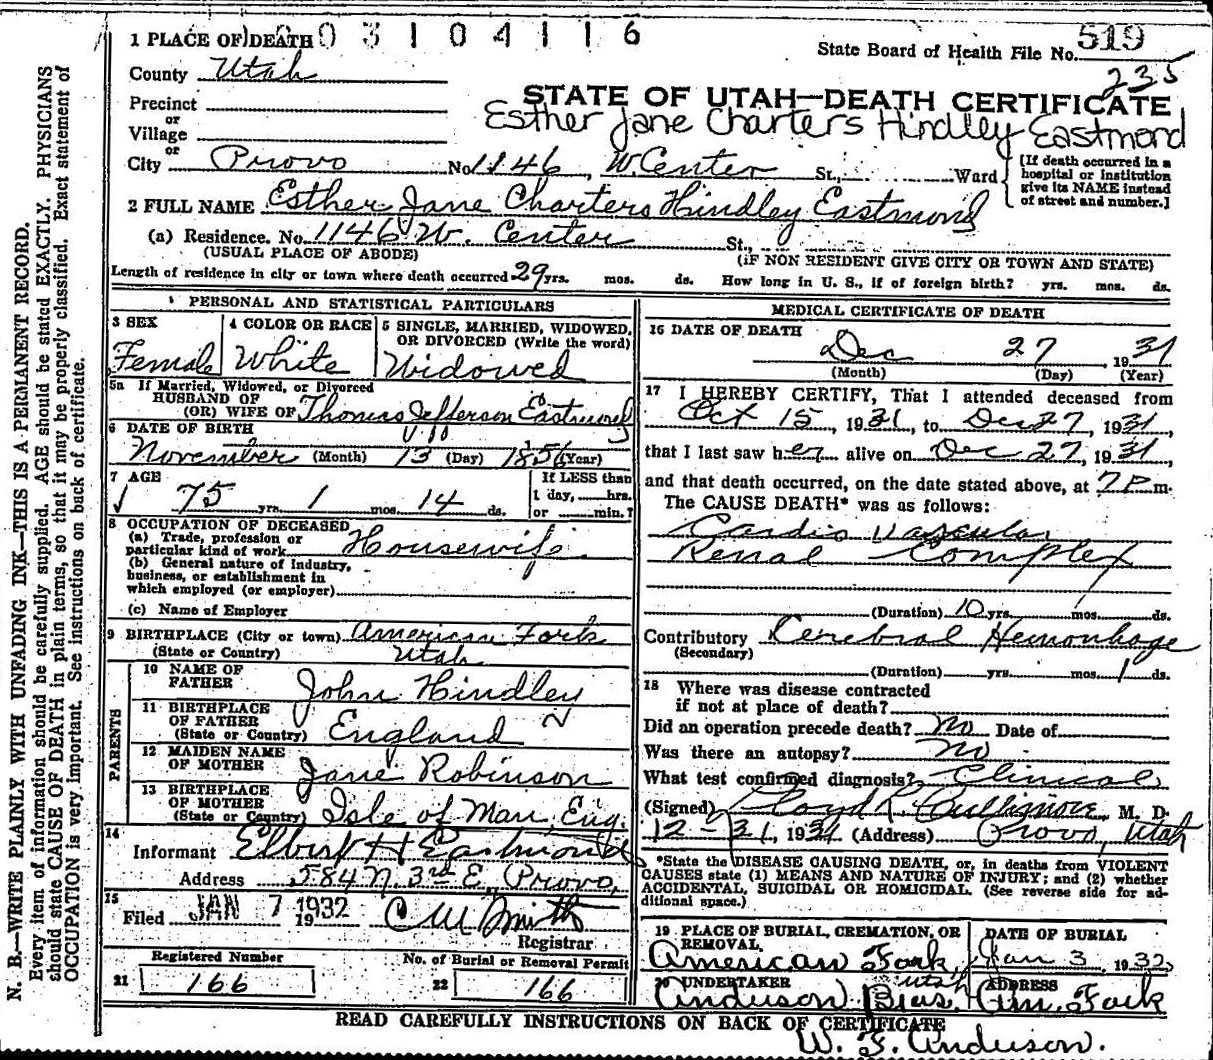 1 PLACE OF DEATH 0 0 3 1 0 4 1 1 6
State Board of Health File No. 519
235
County Utah
Precinct
or
Village
or
City Provo No. 1146, W. Center St., Ward
STATE OF UTAH—DEATH CERTIFICATE
Esther Jane Charters Hindley Eastmond
[If death occurred in a
hospital or institution
give its NAME instead
of street and number.]
2 FULL NAME Esther Jane Charters Hindley Eastmond
(a) Residence. No. 1146 W. Center St.,
(USUAL PLACE OF ABODE) (IF NON RESIDENT GIVE CITY OR TOWN AND STATE)
Length of residence in city or town where death occurred 29 yrs. mos. ds. How long in U. S., if of foreign birth? yrs. mos. ds.
PERSONAL AND STATISTICAL PARTICULARS
3 SEX
Female
4 COLOR OR RACE
White
5 SINGLE, MARRIED, WIDOWED,
OR DIVORCED (Write the word)
Widowed
5a If Married, Widowed, or Divorced
HUSBAND OF
(OR) WIFE OF Thomas Jefferson Eastmond
6 DATE OF BIRTH
November (Month) 13 (Day) 1856 (Year)
7 AGE
75 yrs. 1 mos. 14 ds.
If LESS than
1 day, hrs.
or min.?
8 OCCUPATION OF DECEASED
(a) Trade, profession or
particular kind of work Housewife
(b) General nature of industry,
business, or establishment in
which employed (or employer)
(c) Name of Employer
9 BIRTHPLACE (City or town) American Fork
(State or Country) Utah
PARENTS
10 NAME OF
FATHER John Hindley
11 BIRTHPLACE
OF FATHER
(State or Country) England
12 MAIDEN NAME
OF MOTHER Jane Robinson
13 BIRTHPLACE
OF MOTHER
(State or Country) Isle of Man, Eng.
14
Informant Elbert H Eastmond
Address 584 N. 3rd E., Provo,
15
Filed JAN 7 1932 19 C W Smith
Registrar
Registered Number
21 166
No. of Burial or Removal Permit
22 166
MEDICAL CERTIFICATE OF DEATH
16 DATE OF DEATH
Dec 27, 1931
(Month) (Day) (Year)
17 I HEREBY CERTIFY, That I attended deceased from
Oct 15, 1931, to Dec 27, 1931,
that I last saw her alive on Dec 27, 1931,
and that death occurred, on the date stated above, at 7 P m.
The CAUSE DEATH* was as follows:
Cardio Vascular
Renal Complex
(Duration) 10 yrs. mos. ds.
Contributory Cerebral Hemorrhage
(Secondary)
(Duration) yrs. mos. 1 ds.
18 Where was disease contracted
if not at place of death?
Did an operation precede death? No Date of
Was there an autopsy? No
What test confirmed diagnosis? Clinical
(Signed) Lloyd L. Cullimore, M. D.
12-31, 1931 (Address) Provo, Utah
*State the DISEASE CAUSING DEATH, or, in deaths from VIOLENT
CAUSES state (1) MEANS AND NATURE OF INJURY; and (2) whether
ACCIDENTAL, SUICIDAL OR HOMICIDAL. (See reverse side for ad-
ditional space.)
19 PLACE OF BURIAL, CREMATION, OR
REMOVAL,
American Fork,
Utah
DATE OF BURIAL
Jan 3, 1932
20 UNDERTAKER
Anderson Bros.
ADDRESS
Am. Fork
READ CAREFULLY INSTRUCTIONS ON BACK OF CERTIFICATE
W. F. Anderson.
N. B.—WRITE PLAINLY WITH UNFADING INK—THIS IS A PERMANENT RECORD.
Every item of information should be carefully supplied. AGE should be stated EXACTLY. PHYSICIANS
should state CAUSE OF DEATH in plain terms, so that it may be properly classified. Exact statement of
OCCUPATION is very important. See instructions on back of certificate.